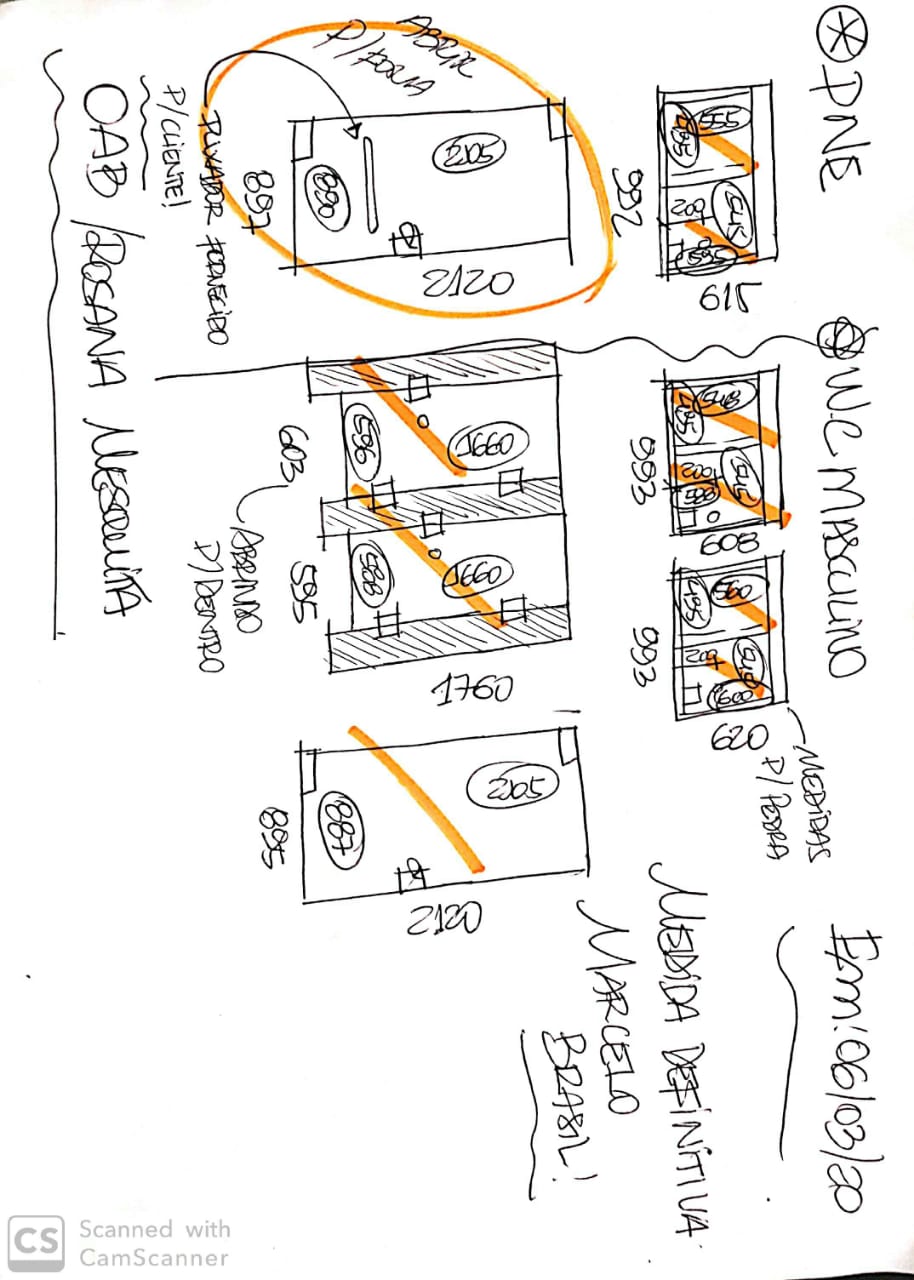 PNE
555
495
545
200
595
992
615
ABRIR
P/FORA
2105
880
887
2120
PUXADOR FORNECIDO
P/CLIENTE!
OAB / ROSANA MESQUITA
W.C MASCULINO
548
495
545
200
588
993
608
560
495
545
200
600
993
620
MEDIDAS
P/ PEDRA
1660
596
603
ABRINDO
P/DENTRO
1660
588
595
1760
2105
887
895
2120
Em: 06/03/20
MEDIDA DEFINITIVA
MARCELO
BRASIL!
CS
Scanned with
CamScanner